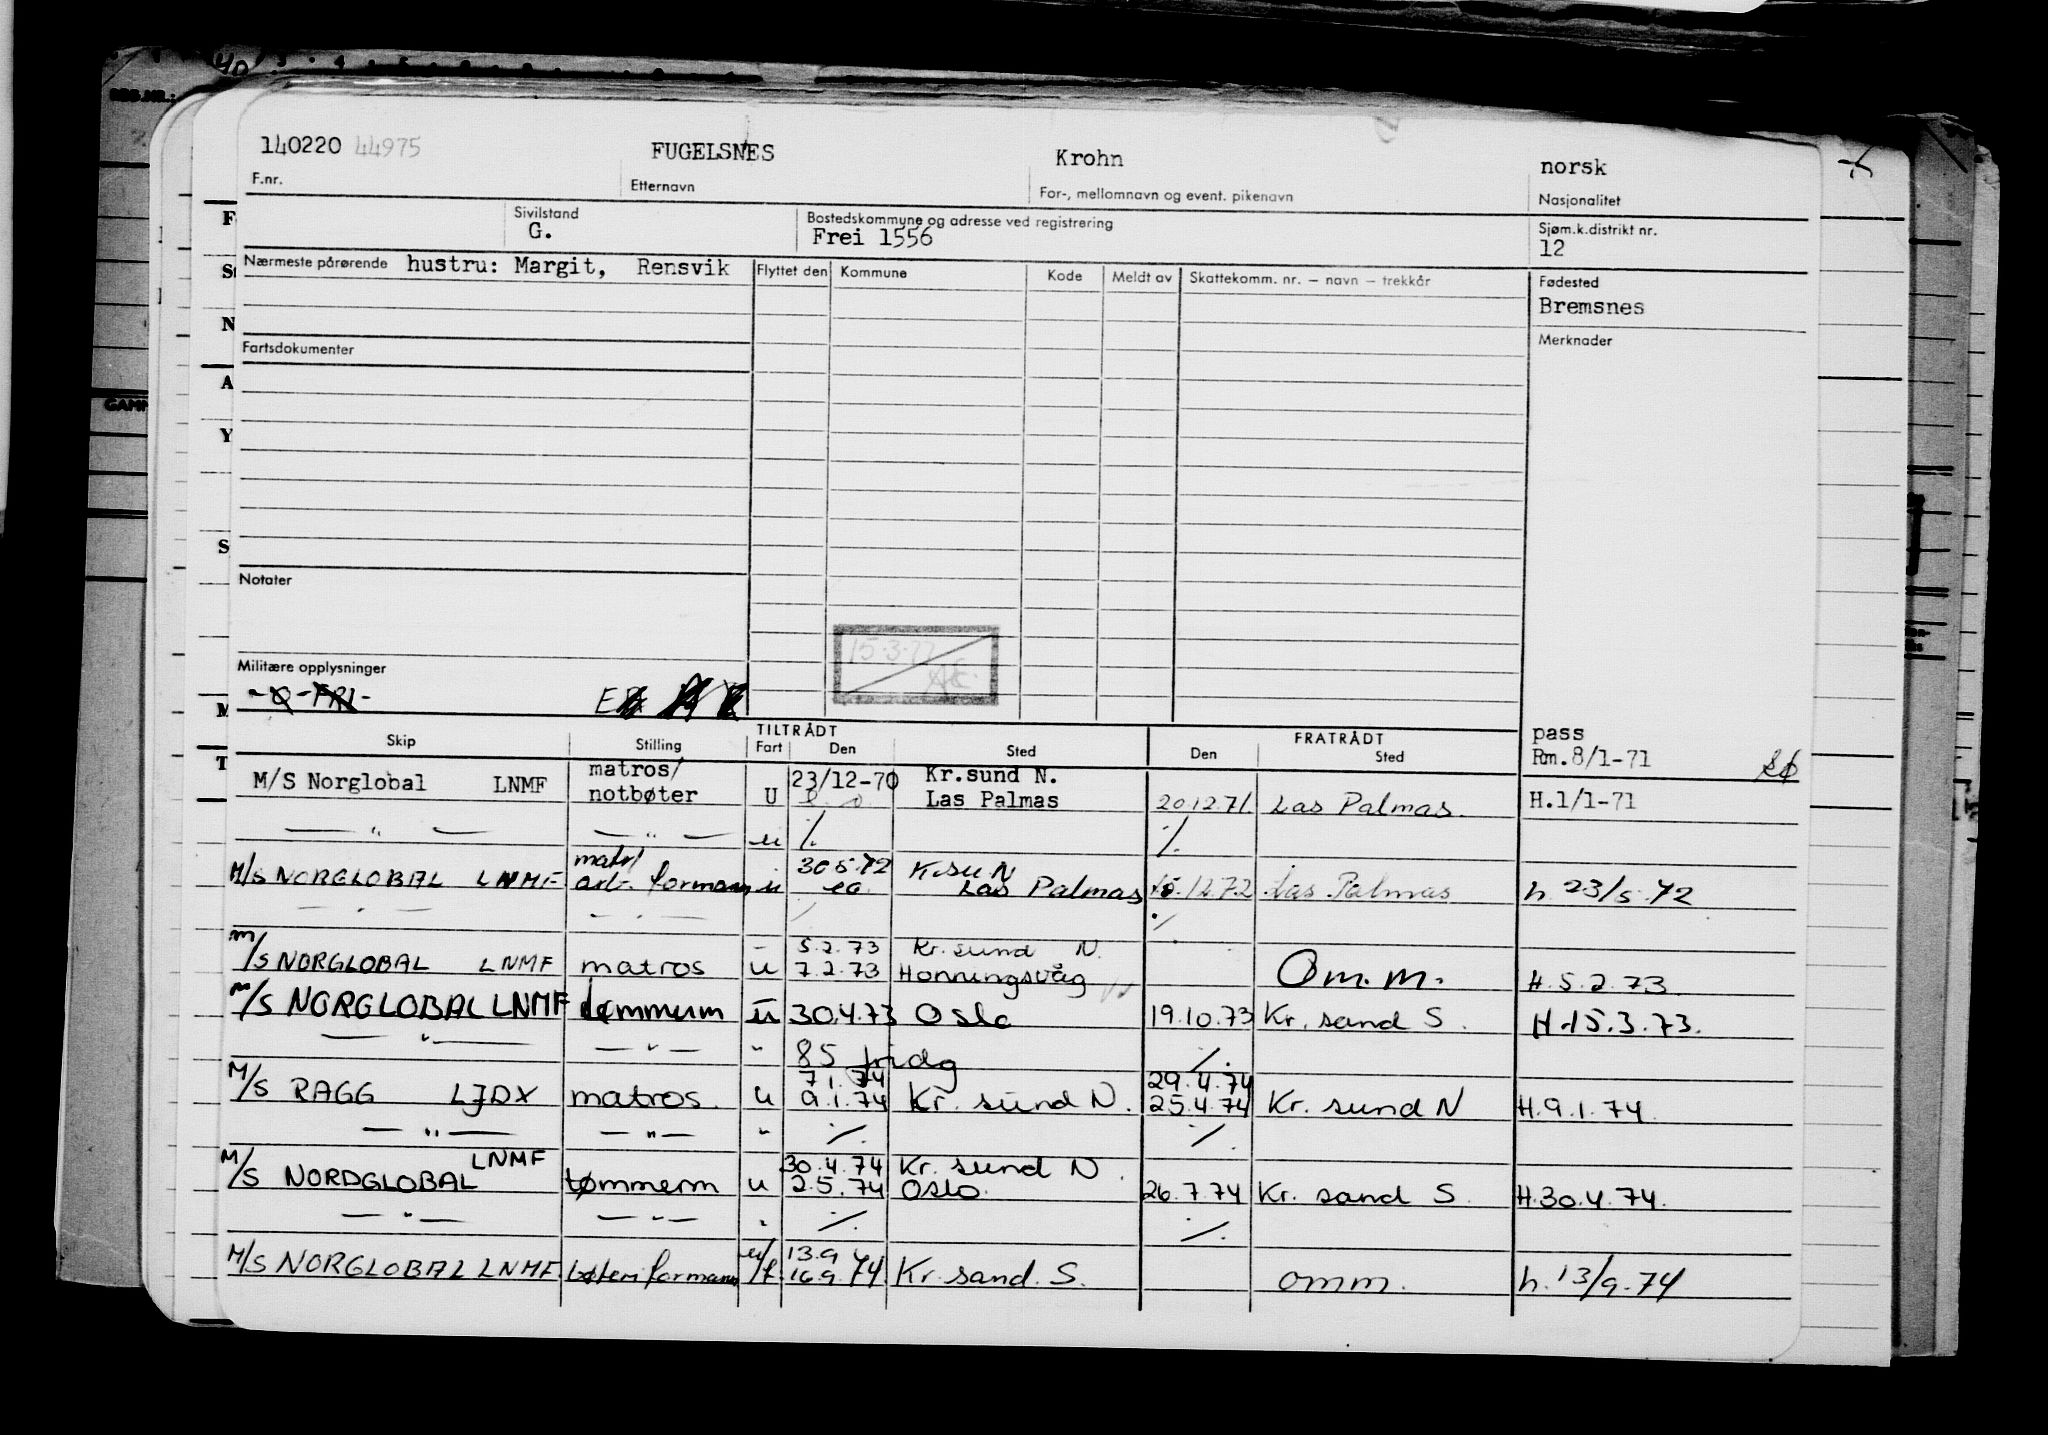 140220 44975 FUGELSNES Krohn norsk
F.nr. Etternavn For-, mellomnavn og event. pikenavn Nasjonalitet
Sivilstand Bostedskommune og adresse ved registrering Sjøm.k.distrikt nr.
G. Frei 1556 12
Nærmeste pårørende hustru: Margit, Rensvik Flyttet den Kommune Kode Meldt av Skattekomm. nr. – navn – trekkår Fødested
Bremsnes
Fartsdokumenter Merknader
Notater
15.3.77
Militære opplysninger
TILTRÅDT FRATRÅDT pass
Skip Stilling Fart Den Sted Den Sted Rm.8/1-71
M/S Norglobal LNMF matros/ 23/12-70 Kr.sund N.
notbøter U Las Palmas 20.12.71 Las Palmas. H.1/1-71
— " — — " — u ./. ./.
matr/ 30.5.72 K.su N
M/S NORGLOBAL LNMF arb. formann u Las Palmas 15.12.72 Las Palmas h. 23/5.72
— " — — " — ./. ./.
5.2.73 Kr. sund N.
M/S NORGLOBAL LNMF matros u 7.2.73 Honningsvåg Om.m. H.5.2.73
M/S NORGLOBAL LNMF tømmerm u 30.4.73 Oslo 19.10.73 Kr. sand S. H.15.3.73.
— " — — " — " 85 fridg ./.
7.1.74 29.4.74
M/S RAGG LJDX matros. u 9.1.74 Kr. sund N. 25.4.74 Kr. sund N H.9.1.74.
— " — — " — " ./. ./.
LNMF 30.4.74 Kr. sund N.
M/S NORDGLOBAL tømmerm u 2.5.74 Oslo. 26.7.74 Kr. sand S. H.30.4.74.
— " — — " — " ./. ./.
13.9
M/S NORGLOBAL LNMF bøteri formann u/f. 16.9.74 Kr. sand. S. omm. h. 13/9.74